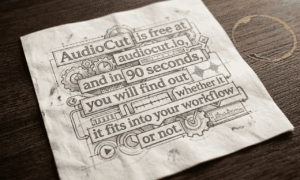 AudioCut is free at
audiocut.io,
and in 90 seconds
you will find out
whether it
fits into your workflow
or not.